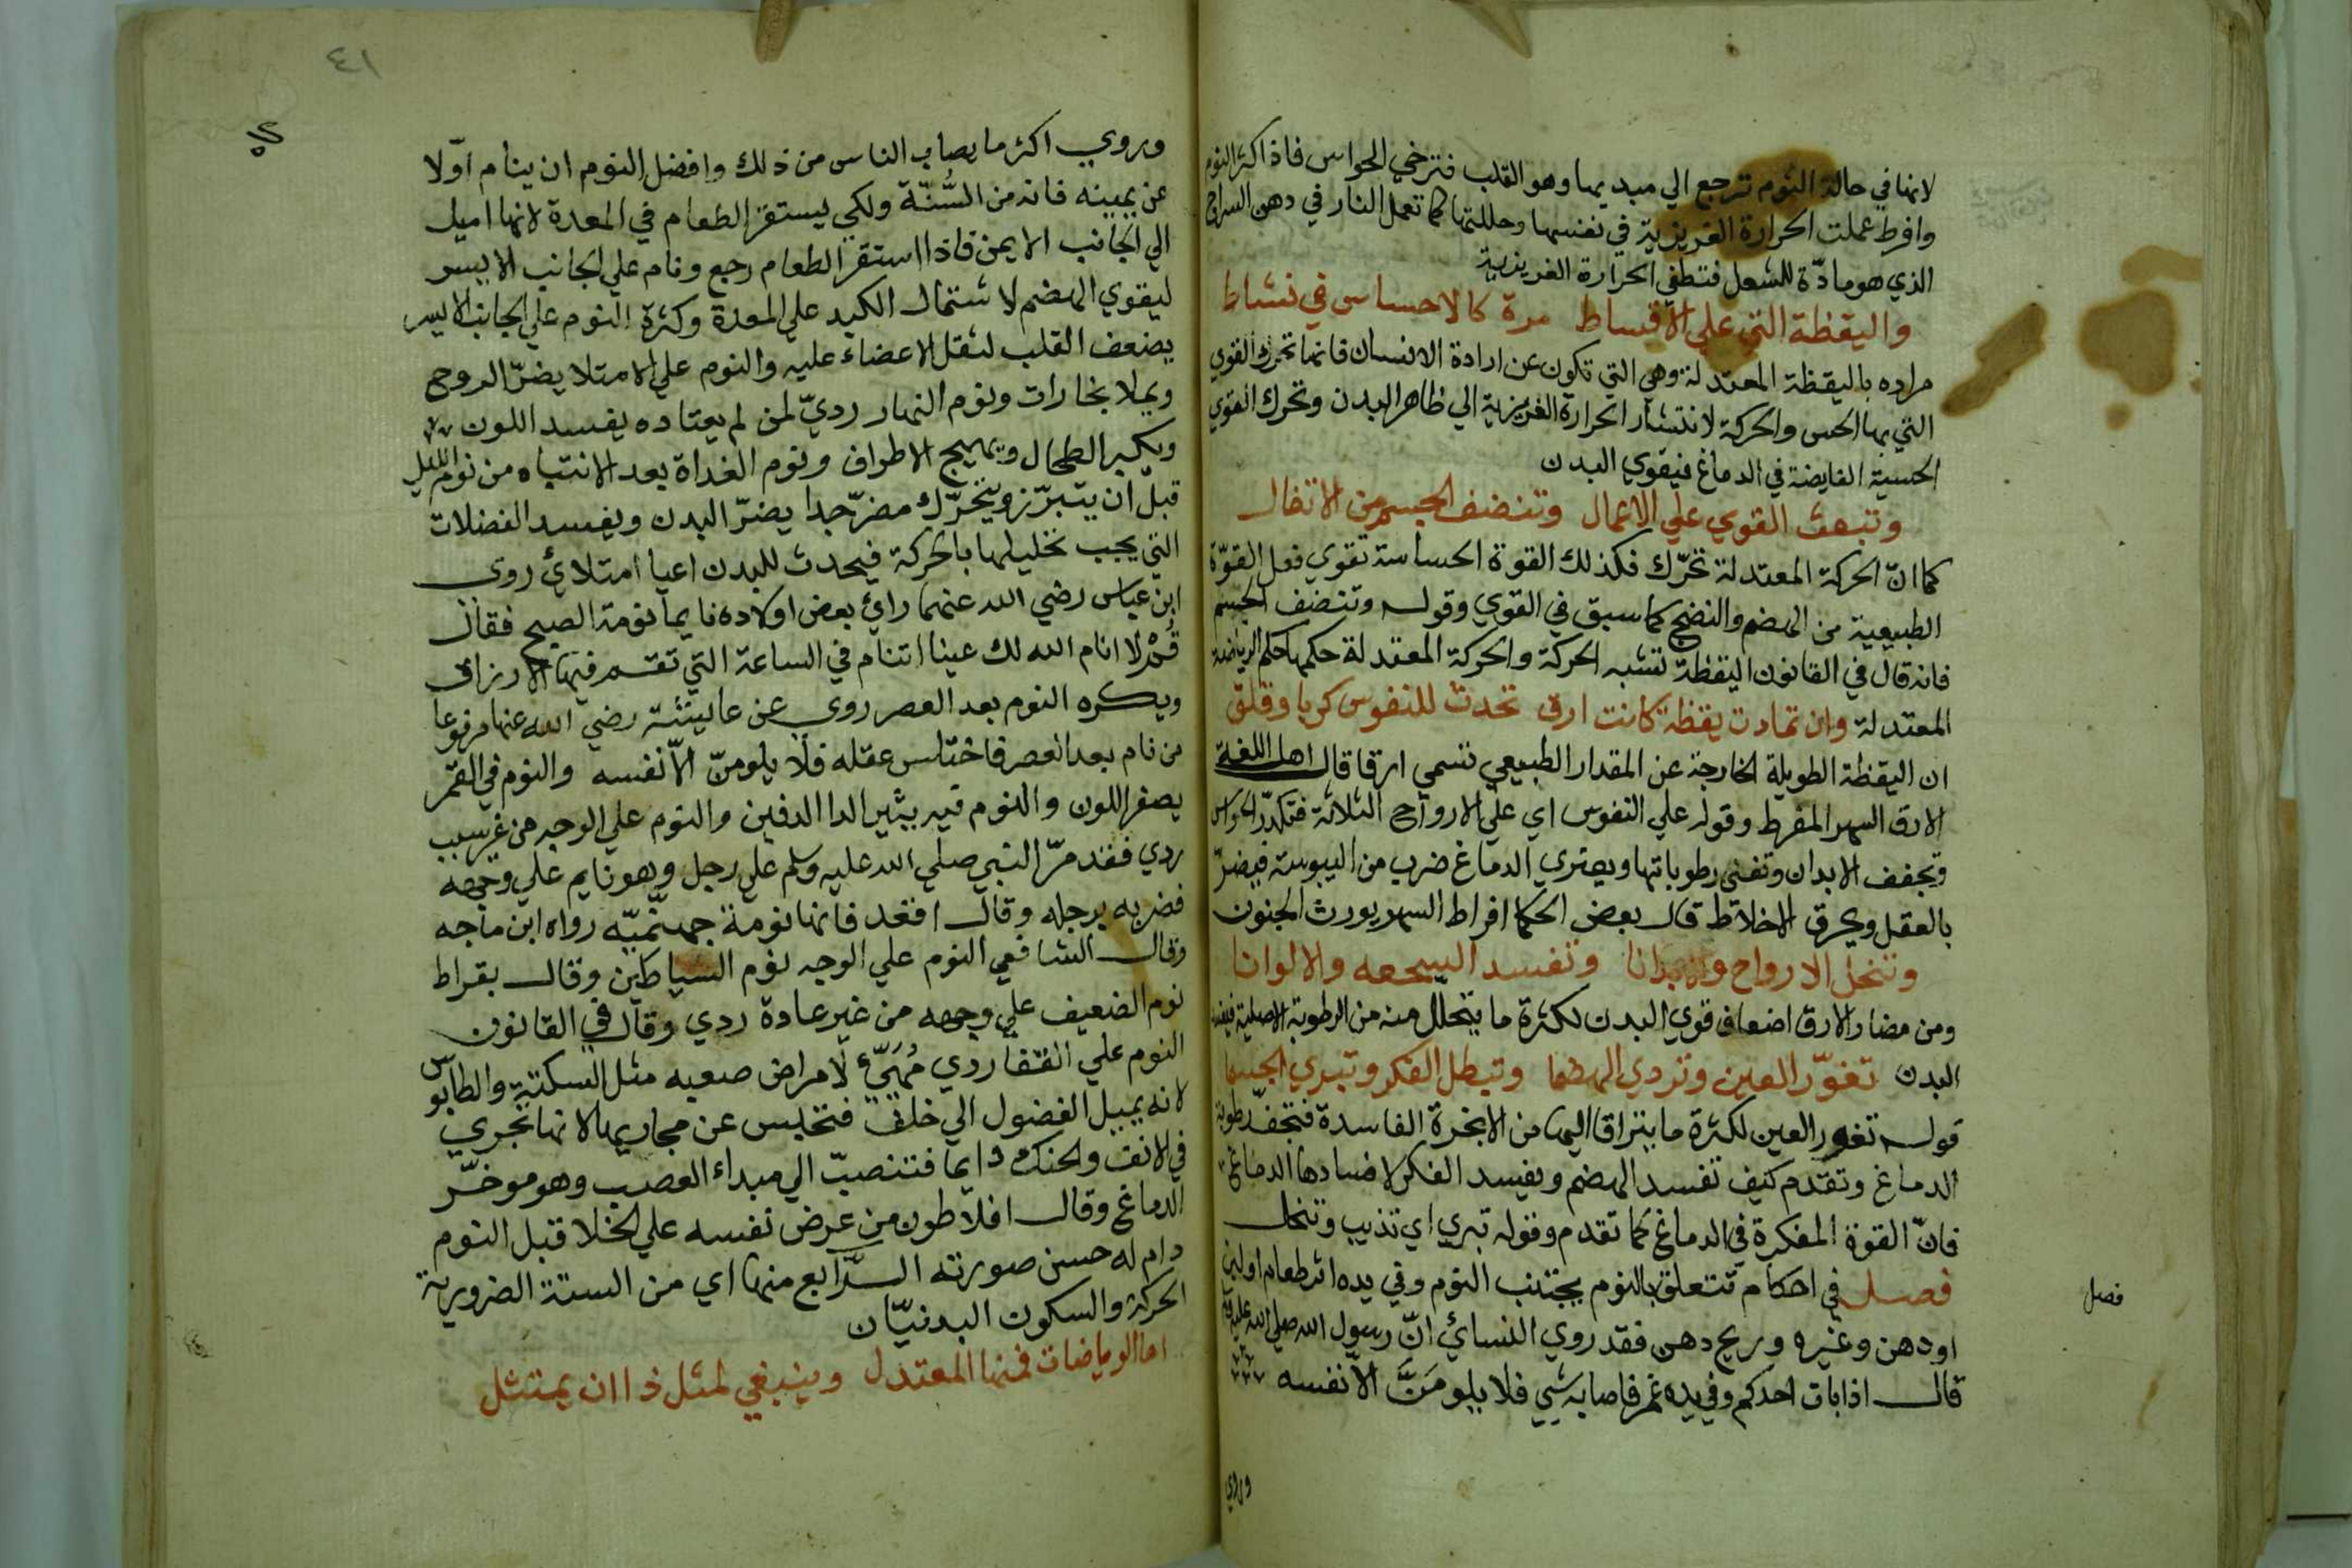 لانها في حالة النوم ترجع الي مبديها وهو القلب فترخي الحواس فاذا كثر النوم
وافرط عملت الحرارة الغريزية في نفسها وحللتها كما تعمل النار في دهن السراج
الذي هو مادّة للشعل فتطفي الحرارة الغريزية
واليقظة التي علي الاقساط مدة كالاحساس في نشاط
مراده باليقظة المعتدلة وهي التي تكون عن ارادة الانسان فانها تحرك القوي
التي بها الحس والحركة لانتشار الحرارة الغريزية الي ظاهر البدن وتحرك القوي
الحسية الفايضة في الدماغ فيقوي البدن
وتبعث القوي علي الاعمال وتنضف الجسم من الاتفال
كما انّ الحركة المعتدلة تحرّك فكذلك القوة الحساسة تقوي فعل القوّة
الطبيعية من الهضم والنضج كما سبق في القوي وقوله وتنضف الجسم
فانه قال في القانون اليقظة تشبه الحركة والحركة المعتدلة حكمها حكم الرياضة
المعتدلة وان تمادت يقظة كانت ارق تحدث للنفوس كربا وقلق
ان اليقظة الطويلة الخارجة عن المقدار الطبيعي تسمي ارقا قال اهل اللغة
الارق السهر المفرط وقوله علي النفوس اي علي الارواح الثلاثة فتكدّر الحواس
وتجفف الابدان وتفني رطوباتها ويعتري الدماغ ضرب من اليبوسة فيضرّ
بالعقل ويحرق الاخلاط قال بعض الحكما افراط السهر يورث الجنون
وتنحل الارواح والابدانا وتفسد السحعه والالوانا
ومن مضار الارق اضعاف قوي البدن لكثرة ما يتحلل منه من الرطوبة الاصلية
البدن تغوّر العين وتردي الهضما وتبطل الفكر وتبري الجسما
قوله تغور العين لكثرة ما يتراقا اليها من الابخرة الفاسدة فتجفّ رطوبة
الدماغ وتقدم كيف تفسد الهضم ويفسد الفكر لافسادها الدماغ
فانّ القوة المفكرة في الدماغ كما تقدم وقوله تبري اي تذيب وتنحل
فصل
فصل في احكام تتعلق بالنوم يجتنب النوم وفي يده اثر طعام او لبن
او دهن وغيره وريح دهن فقد روي النسائي انّ رسول الله صلي الله عليه
قال اذا بات احدكم وفي يده غمر فاصابه شي فلا يلومَنَّ الاّ نفسه
وروي
٤١
وروي اكثر ما يصاب الناس من ذلك وافضل النوم ان ينام اوّلا
عن يمينه فانه من السُّنّة ولكي يستقر الطعام في المعدة لانها اميل
الي الجانب الايمن فاذا استقر الطعام رجع ونام علي الجانب الايسر
ليقوي الهضم لاشتمال الكبد علي المعدة وكثرة النوم علي الجانب الايسر
يضعف القلب لثقل الاعضاء عليه والنوم علي الامتلا يضرّ الروح
ويملا بخارات ونوم النهار رديّ لمن لم يعتاده يفسد اللون
ويكبر الطحال ويهيج الاطراف ونوم الغداة بعد الانتباه من نوم الليل
قبل ان يتبرّز ويتحرّك مضرّ جدا يضرّ البدن ويفسد الفضلات
التي يجب تحليلها بالحركة فيحدث للبدن اعيا امتلائي روي
ابن عباس رضي الله عنهما رائ بعض اولاده نايما نومة الصبح فقال
قُمْ لا انام الله لك عينا اتنام في الساعة التي تقسم فيها الارزاق
ويكره النوم بعد العصر روي عن عايشة رضي الله عنها مرفوعا
من نام بعد العصر فاختلس عقله فلا يلومنّ الاّ نفسه والنوم في القمر
يصفر اللون والنوم فيه يثير الدا الدفين والنوم علي الوجه من غير سبب
ردي فقد مرّ النبي صلي الله عليه وسلم علي رجل وهو نايم علي وجهه
فضربه برجله وقال اقعد فانها نومة جهنّميّه رواه ابن ماجه
وقال الشافعي النوم علي الوجه نوم الشياطين وقال بقراط
نوم الضعيف علي وجهه من غير عادة ردي وقال في القانون
النوم علي القفا ردي مُهَيّئ لامراض صعبه مثل السكتة والكابوس
لانه يميل الفضول الي خلف فتحبس عن مجاريها لانها تجري
في الانف والحنك دايما فتنصبّ الي مبداء العصب وهو موخّر
الدماغ وقال افلاطون من عرض نفسه علي الخلا قبل النوم
دام له حسن صورته الرّابع منها اي من الستة الضرورية
الحركة والسكون البدنيّان
اما الرياضات فمنها المعتدل وينبغي لمثل ذا ان يمتثل